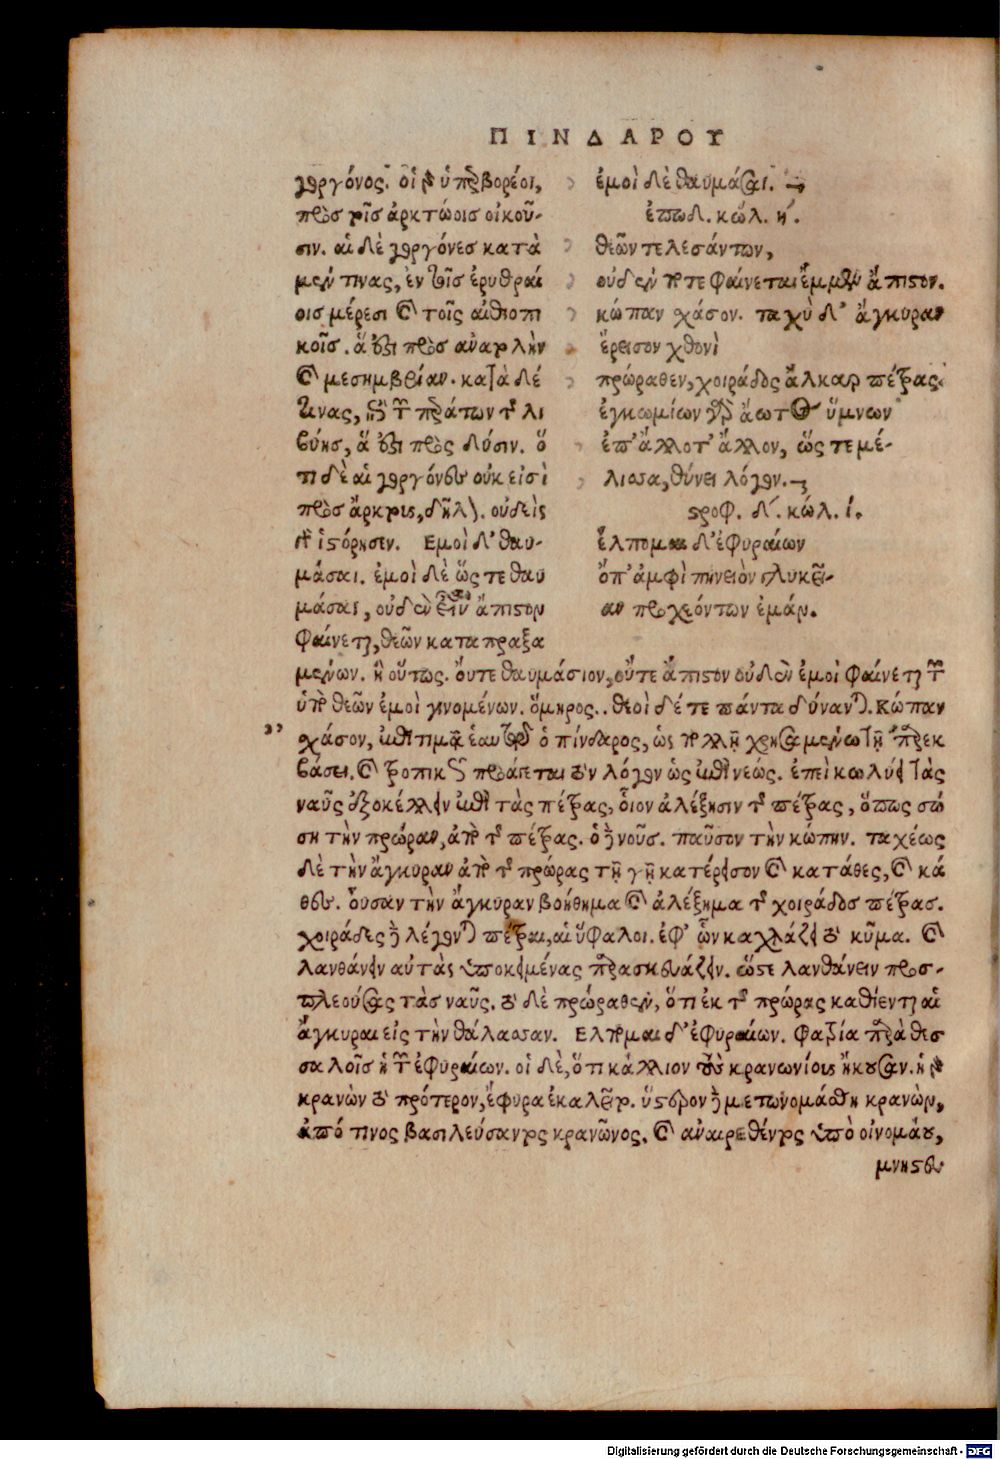 ΠΙΝΔΑΡΟΥ
γοργόνος. οἱ γὰρ ὑπερβορέοι,
πρὸς τοῖς ἀρκτώοις οἰκοῦ-
σιν. αἱ δὲ γοργόνες κατὰ
μέν τινας, ἐν τοῖς ἐρυθραί
οις μέρεσι καὶ τοῖς αἰθιοπι
κοῖς. ἅ ἐστι πρὸς ἀνατολὴν
καὶ μεσημβρίαν. κατὰ δέ
τινας, ἐπὶ τῶν περάτων τῆς λι
βύης, ἅ ἐστι πρὸς δύσιν. ὅ
τι δὲ αἱ γοργόνες οὐκ εἰσὶ
πρὸς ἄρκτοις, δῆλον. οὐδεὶς
γὰρ ἱστόρησιν. Εμοὶ δ' θαυ-
μάσαι. ἐμοὶ δὲ ὥς τε θαυ
μάσαι, οὐδὲν ἄπιστον
φαίνεται, θεῶν καταπραξα
μένων. ἢ οὕτως. οὔτε θαυμάσιον, οὔτε ἄπιστον οὐδὲν ἐμοὶ φαίνεται τῶν
ὑπὸ θεῶν ἐμοὶ γινομένων. ὅμηρος.. θεοὶ δέ τε πάντα δύνανται. Κώπαν
σχάσον, ἐπιτιμᾷ ἑαυτῷ ὁ πίνδαρος, ὡς πολλῇ χρησαμένῳ τῇ παρεκ
βάσει. καὶ τροπικῶς προάγεται τὸν λόγον ὡς ἐπὶ νεώς. ἐπεὶ κωλύει τὰς
ναῦς ἐξοκέλλειν ἐπὶ τὰς πέτρας, οἷον ἀλέξησιν τῆς πέτρας, ὅπως στή
σῃ τὴν πρώραν, ἀπὸ τῆς πέτρας. ὁ δὲ νοῦς. παῦσον τὴν κώπην. ταχέως
δὲ τὴν ἄγκυραν ἀπὸ τῆς πρώρας τῇ γῇ κατέρεισον καὶ κατάθες, καὶ κά
θες. οὖσαν τὴν ἄγκυραν βοήθημα καὶ ἀλέξημα τῆς χοιράδος πέτρας.
χοιράδες δὲ λέγονται πέτραι, αἱ ὕφαλοι. ἐφ' ὧν καχλάζει τὸ κῦμα. καὶ
λανθάνειν αὐτὰς ὑποκειμένας παρασκευάζειν. ὥστε λανθάνειν προσ-
πλεούσας τὰς ναῦς. τὸ δὲ πρώραθεν, ὅτι ἐκ τῆς πρώρας καθίενται αἱ
ἄγκυραι εἰς τὴν θάλασσαν. Ελπομαι δ' ἐφυραίων. φατρία παρὰ θεσ
σαλοῖς ἡ τῶν ἐφυραίων. οἱ δὲ, ὅτι κάλλιον τοὺς κρανωνίους ἤκουσαν. ἡ γὰρ
κρανὼν τὸ πρότερον, ἔφυρα ἐκαλεῖτο. ὕστερον δὲ μετωνομάσθη κρανὼν,
ἀπό τινος βασιλεύσαντος κρανῶνος. καὶ ἀναιρεθέντος ὑπὸ οἰνομάου,
μνηστευ
ἐμοὶ δὲ θαυμάσαι.
ἐπωδ. κώλ. η.
θεῶν τελεσάντων,
οὐδέν ποτε φαίνεται ἔμμεν ἄπιστον.
κώπαν σχάσον. ταχὺ δ' ἄγκυραν
ἔρεισον χθονὶ
πρώραθεν, χοιράδος ἄλκαρ πέτρας.
ἐγκωμίων γὰρ ἄωτος ὕμνων
ἐπ' ἄλλοτ' ἄλλον, ὥς τε μέ-
λισσα, θύνει λόγον.
στροφ. δ. κώλ. ι.
ἔλπομαι δ' ἐφυραίων
ὄπ' ἀμφὶ πηνειὸν γλυκεῖ-
αν προχεόντων ἐμάν.
Digitalisierung gefördert durch die Deutsche Forschungsgemeinschaft - DFG